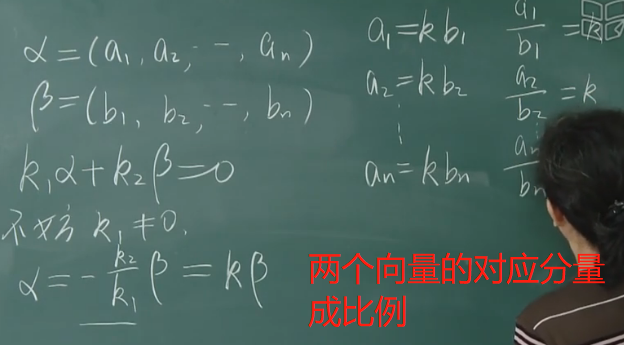 α=(a₁,a₂,…,aₙ)
β=(b₁,b₂,…,bₙ)
k₁α+k₂β=0
不妨 k₁≠0.
α=-k₂/k₁ β=kβ
a₁=kb₁
a₂=kb₂
⋮
aₙ=kbₙ
a₁/b₁=k
a₂/b₂=k
⋮
aₙ/bₙ
两个向量的对应分量
成比例